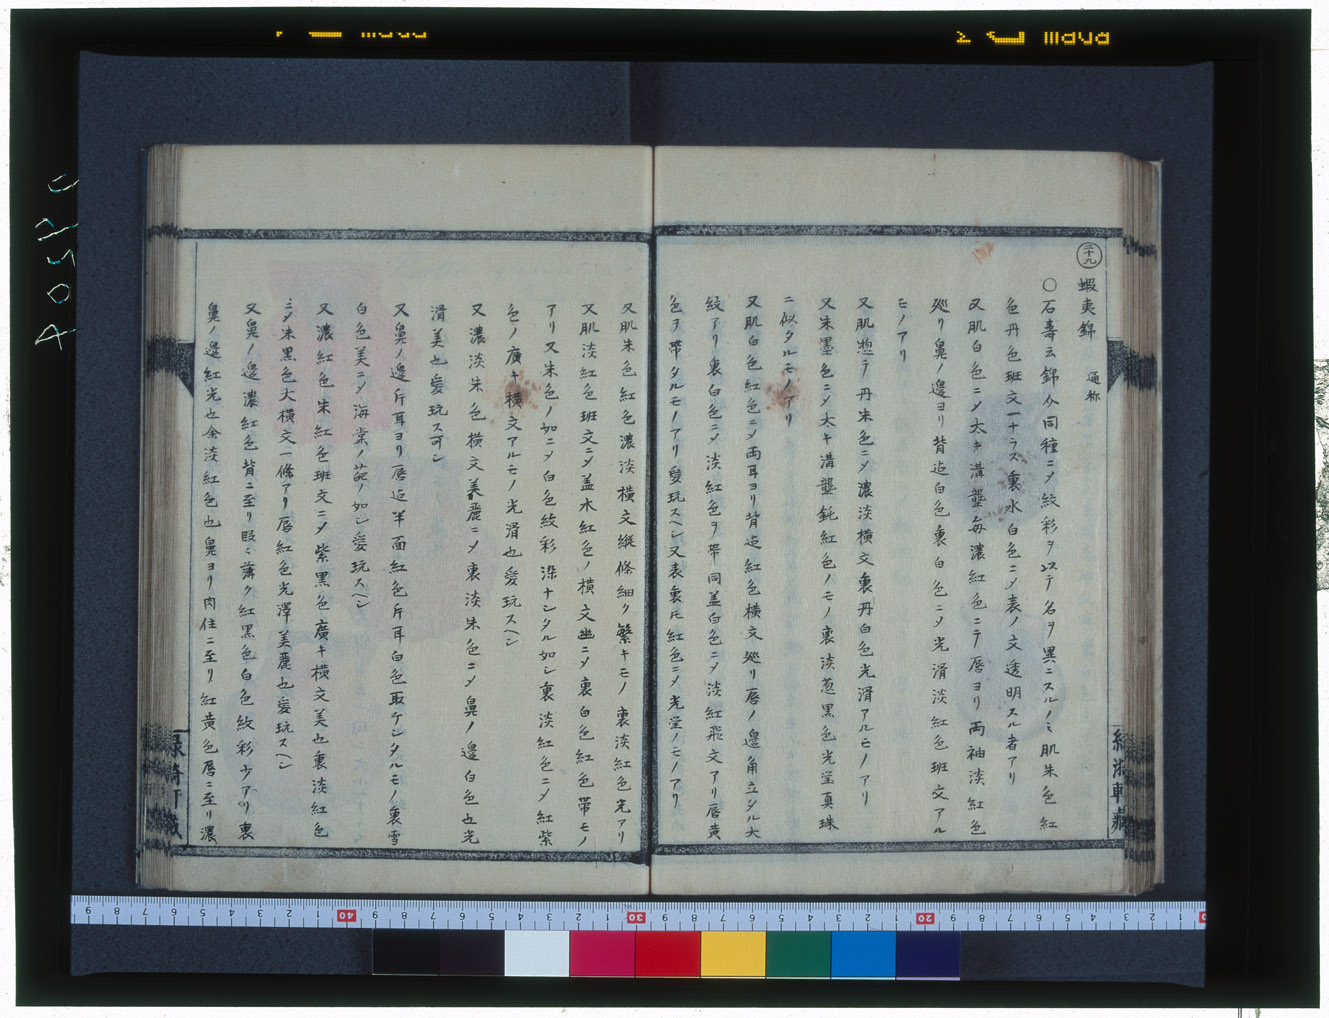 二十九
蝦夷錦 通称
〇石壽云錦介同種ニメ紋彩ヲ以テ名ヲ異ニスルノミ肌朱色紅
色丹色斑文一ナラス裏水白色ニメ表ノ文透明スル者アリ
又肌白色ニメ大キ溝壟毎濃紅色ニテ唇ヨリ両袖淡紅色
廵リ鼻ノ邉ヨリ背迄白色裏白色ニメ光滑淡紅色斑文アル
モノアリ
又肌惣テ丹朱色ニメ濃淡横文裏丹白色光滑アルモノアリ
又朱墨色ニメ大キ溝壟鈍紅色ノモノ裏淡葱黒色光瑩真珠
ニ似タルモノアリ
又肌白色紅色ニメ両耳ヨリ背迄紅色横文廵リ唇ノ邉角立タル大
紋アリ裏白色ニメ淡紅色ヲ帯同蓋白色ニメ淡紅飛文アリ唇黄
色ヲ帯タルモノアリ愛玩スヘシ又表裏𪜈紅色ニメ光瑩ノモノアリ
又肌朱色紅色濃淡横文縦條細ク繁キモノ裏淡紅色光アリ
又肌淡紅色斑文ニメ蓋水紅色ノ横文幽ニメ裏白色紅色帯モノ
アリ又朱色ノ如ニメ白色紋彩染ナシタル如シ裏淡紅色ニメ紅紫
色ノ廣キ横文アルモノ光滑也愛玩スヘシ
又濃淡朱色横文美麗ニメ裏淡朱色ニメ鼻ノ邉白色也光
滑美也愛玩ス可シ
又鼻ノ邉斤耳ヨリ唇迄半面紅色斤耳白色取ケシタルモノ裏雪
白色美ニメ海棠ノ葩ノ如シ愛玩スヘシ
又濃紅色朱紅色斑文ニメ紫黒色廣キ横文美也裏淡紅色
ニメ朱黒色大横文一條アリ唇紅色光澤美麗也愛玩スヘシ
又鼻ノ邉濃紅色背ニ至リ眼ニ薄ク紅黒色白色紋彩少アリ裏
鼻ノ邉紅光也余淡紅色也鼻ヨリ肉住ニ至リ紅黄色唇ニ至リ濃
40
30
20